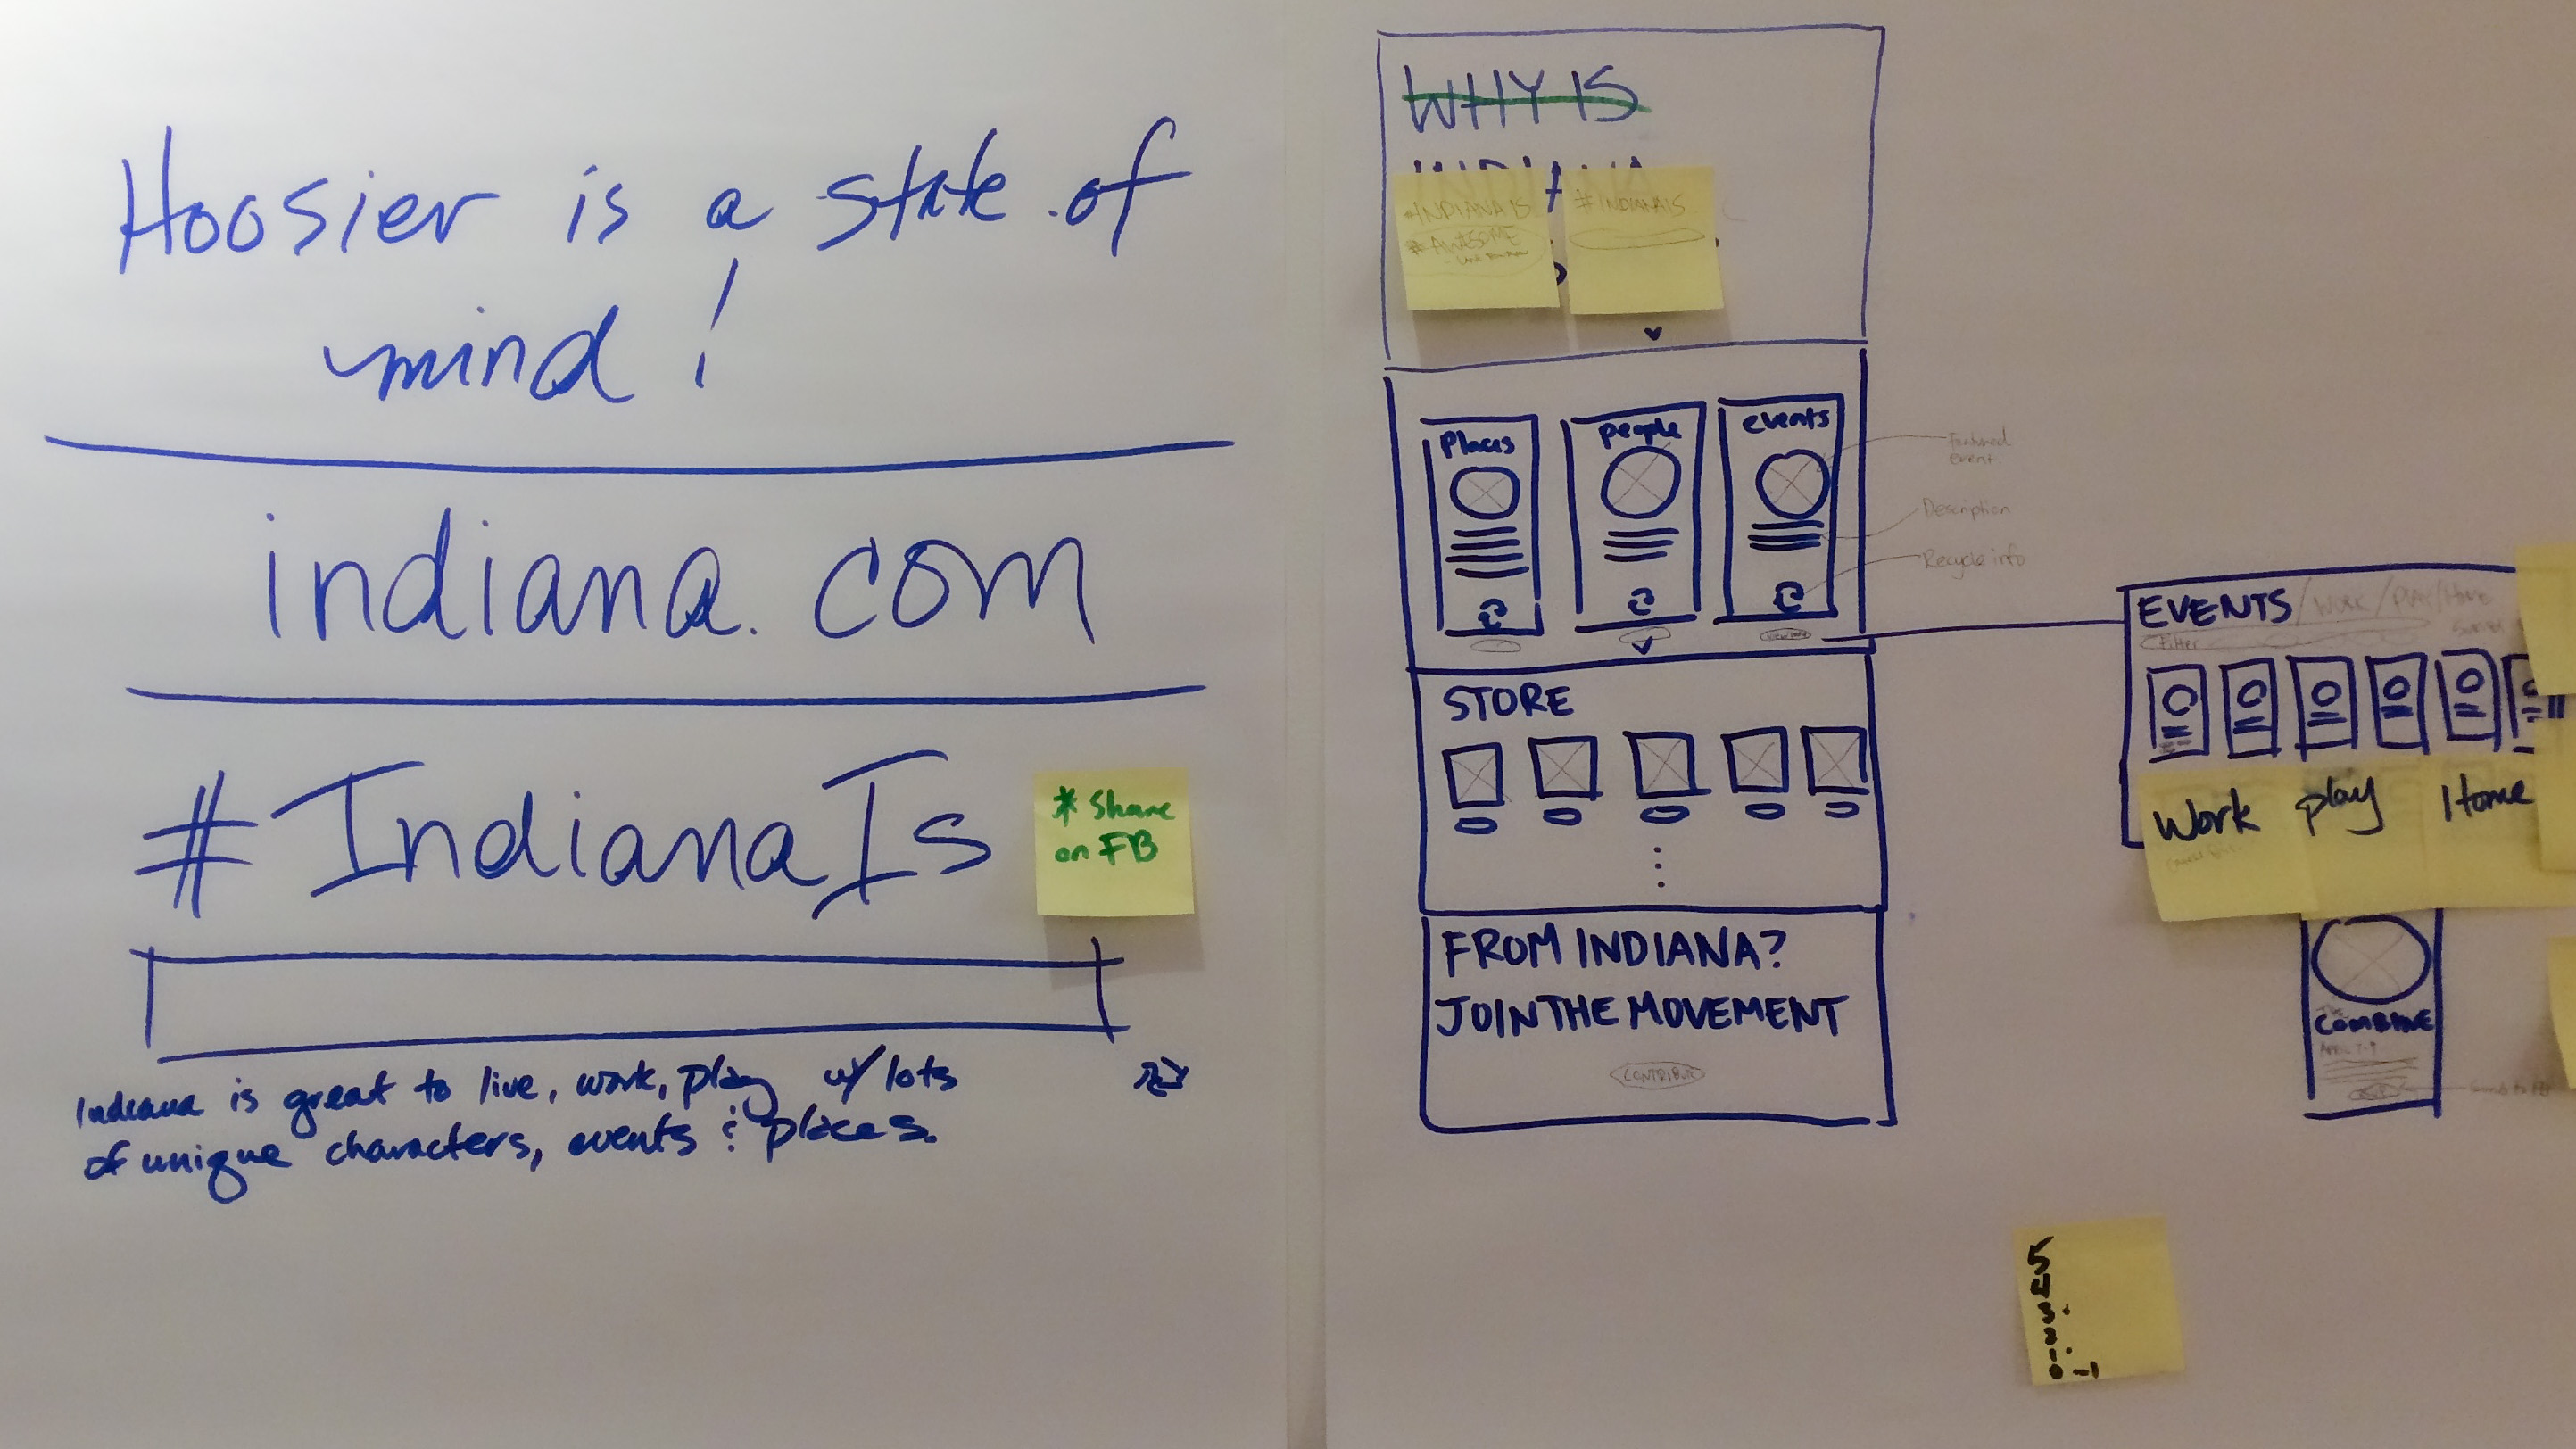 Hoosier is a state of
mind!
indiana.com
#IndianaIs
* Share
on FB
Indiana is great to live, work, play w/ lots
of unique characters, events & places.
WHY IS
INDIANA
#INDIANA IS
#AWESOME
#INDIANAIS
Places
people
events
Featured
event
Description
Recycle info
view more
STORE
FROM INDIANA?
JOIN THE MOVEMENT
CONTRIBUTE
EVENTS/WORK/PLAY/HOME
Filter
Work
play
Home
The
COMBINE
APRIL 7-9
5
4
3
2
1
0 -1